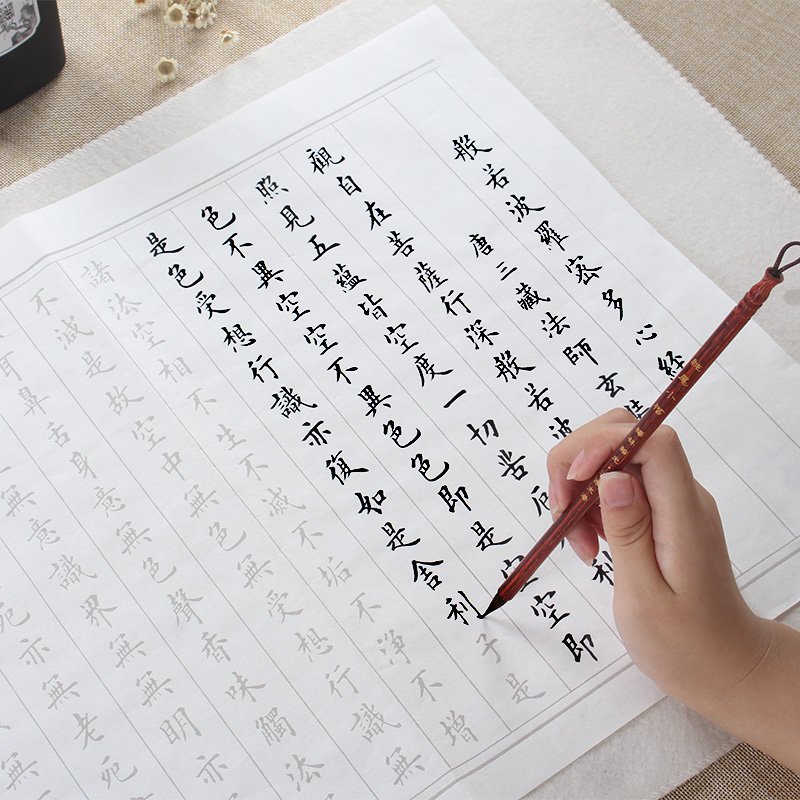 般若波羅密多心經
唐三藏法師玄奘
觀自在菩薩行深般若波
照見五蘊皆空度一切苦厄利
色不異空空不異色色即是空空即
是色受想行識亦復如是舍利子是
諸法空相不生不滅不垢不淨不增
不減是故空中無色無受想行識無
耳鼻舌身意無色聲香味觸法
無意識界無無明亦
死亦無老死
無